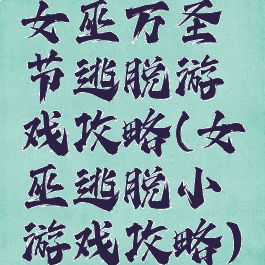 女巫万圣
节逃脱游
戏攻略(女
巫逃脱小
游戏攻略)